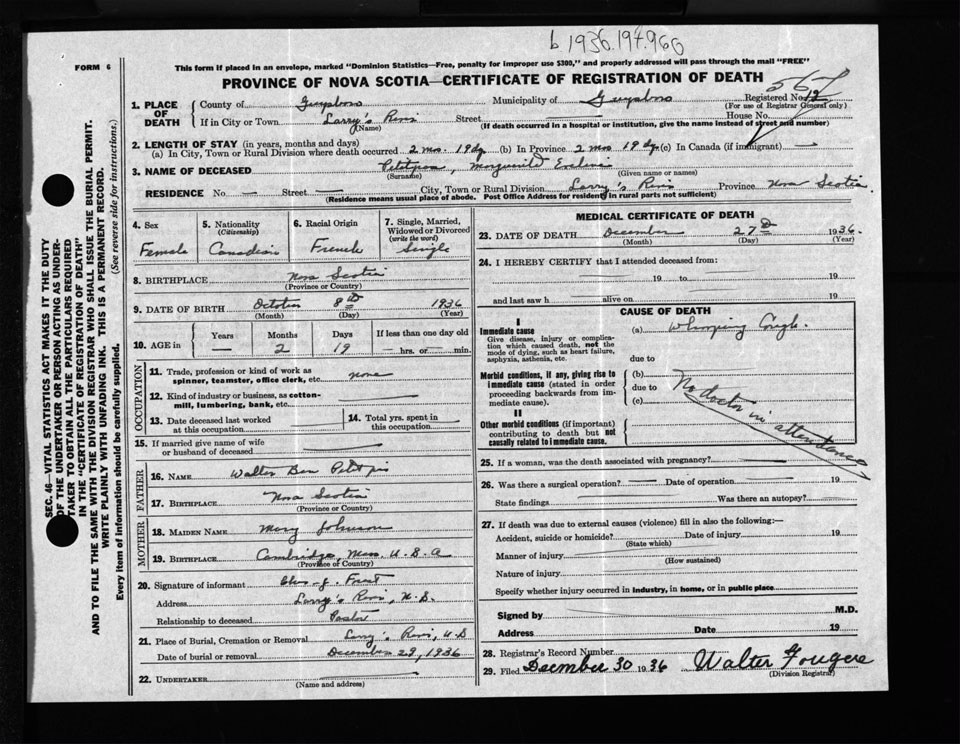 b 1936.194.960
FORM 6
This form if placed in an envelope, marked "Dominion Statistics—Free, penalty for improper use $300," and properly addressed will pass through the mail "FREE"
PROVINCE OF NOVA SCOTIA—CERTIFICATE OF REGISTRATION OF DEATH
567
1. PLACE OF DEATH County of Guysboro Municipality of Guysboro Registered No. 12
(For use of Registrar General only)
If in City or Town Larry's River Street House No.
(Name) (If death occurred in a hospital or institution, give the name instead of street and number)
2. LENGTH OF STAY (in years, months and days)
(a) In City, Town or Rural Division where death occurred 2 mos. 19 dy (b) In Province 2 mos 19 dy (c) In Canada (if immigrant) —
3. NAME OF DECEASED Petitpas, Marguerite Eveline
(Surname) (Given name or names)
RESIDENCE No — Street — City, Town or Rural Division Larry's River Province Nova Scotia.
(Residence means usual place of abode. Post Office Address for residents in rural parts not sufficient)
4. Sex 5. Nationality 6. Racial Origin 7. Single, Married,
(Citizenship) Widowed or Divorced
(write the word)
Female Canadian French Single
8. BIRTHPLACE Nova Scotia
(Province or Country)
9. DATE OF BIRTH October 8th 1936
(Month) (Day) (Year)
10. AGE in Years Months Days If less than one day old
— 2 19 — hrs. or — min.
OCCUPATION
11. Trade, profession or kind of work as
spinner, teamster, office clerk, etc. none
12. Kind of industry or business, as cotton-
mill, lumbering, bank, etc.
13. Date deceased last worked 14. Total yrs. spent in
at this occupation this occupation
15. If married give name of wife
or husband of deceased
FATHER
16. NAME Walter Ben Petitpas
17. BIRTHPLACE Nova Scotia
(Province or Country)
MOTHER
18. MAIDEN NAME Mary Johnson
19. BIRTHPLACE Cambridge, Mass. U.S.A
(Province or Country)
20. Signature of informant Chas. J. Forest
Address Larry's River, N.S.
Relationship to deceased Pastor
21. Place of Burial, Cremation or Removal Larry's River, N.S
Date of burial or removal December 29, 1936
22. UNDERTAKER
(Name and address)
MEDICAL CERTIFICATE OF DEATH
23. DATE OF DEATH December 27th 1936.
(Month) (Day) (Year)
24. I HEREBY CERTIFY that I attended deceased from:
19 to 19
and last saw h alive on 19
CAUSE OF DEATH
I
Immediate cause (a) Whooping Cough.
Give disease, injury or complica-
tion which caused death, not the
mode of dying, such as heart failure,
asphyxia, asthenia, etc.
due to
Morbid conditions, if any, giving rise to (b)
immediate cause (stated in order due to
proceeding backwards from im-
mediate cause). (c)
No doctor in attendance
II
Other morbid conditions (if important)
contributing to death but not
causally related to immediate cause.
25. If a woman, was the death associated with pregnancy?
26. Was there a surgical operation? Date of operation 19
State findings Was there an autopsy?
27. If death was due to external causes (violence) fill in also the following:—
Accident, suicide or homicide? Date of injury 19
(State which)
Manner of injury
(How sustained)
Nature of injury
Specify whether injury occurred in industry, in home, or in public place
Signed by M.D.
Address Date 19
28. Registrar's Record Number
29. Filed December 30 1936 Walter Fougere
(Division Registrar)
SEC. 46—VITAL STATISTICS ACT MAKES IT THE DUTY
OF THE UNDERTAKER OR PERSON ACTING AS UNDER-
TAKER TO OBTAIN ALL THE PARTICULARS REQUIRED
IN THE "CERTIFICATE OF REGISTRATION OF DEATH"
AND TO FILE THE SAME WITH THE DIVISION REGISTRAR WHO SHALL ISSUE THE BURIAL PERMIT.
WRITE PLAINLY WITH UNFADING INK. THIS IS A PERMANENT RECORD.
Every item of information should be carefully supplied. (See reverse side for instructions.)